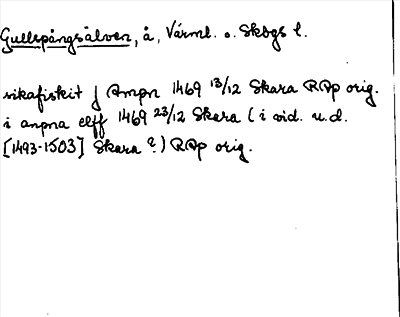 Gullspångsälven, å, Värml. o. Skbgs l.
vikafiskit j Ampn 1469 13/12 Skara RAp orig.
i anpna elff 1469 23/12 Skara (i vid. u.d.
[1493-1503] Skara?) RAp orig.